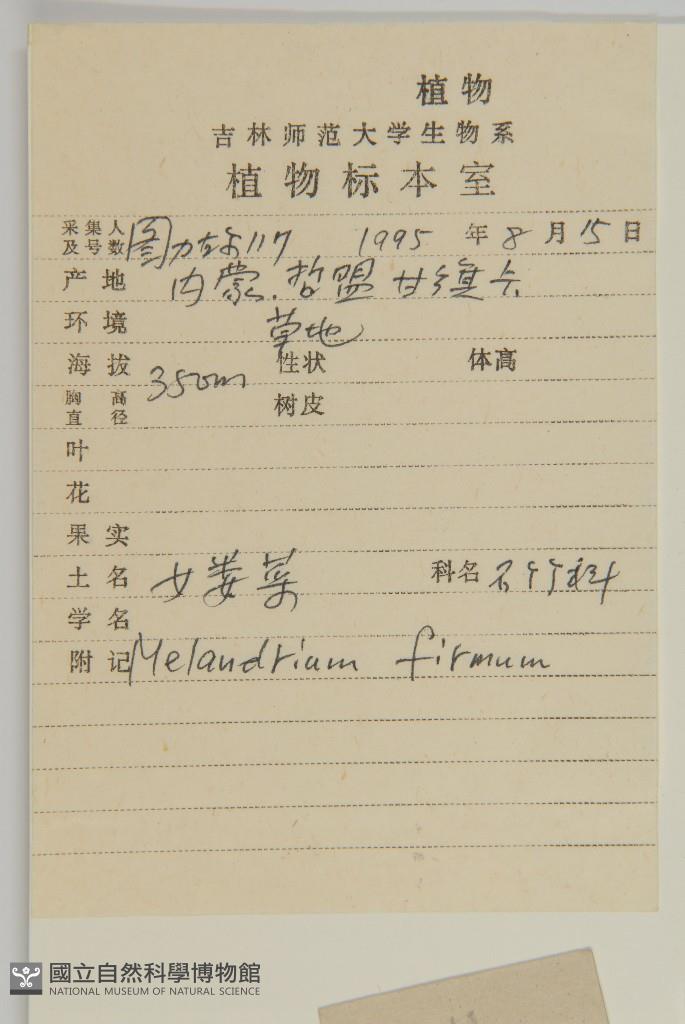 植物
吉林师范大学生物系
植物标本室
采集人及号数 图力古尔117 1995年8月15日
产地 内蒙.哲盟甘旗卡
环境 草地
海拔 350m 性状 体高
胸高直径 树皮
叶
花
果实
土名 女娄菜 科名 石竹科
学名
附记 Melandrium firmum
國立自然科學博物館
NATIONAL MUSEUM OF NATURAL SCIENCE